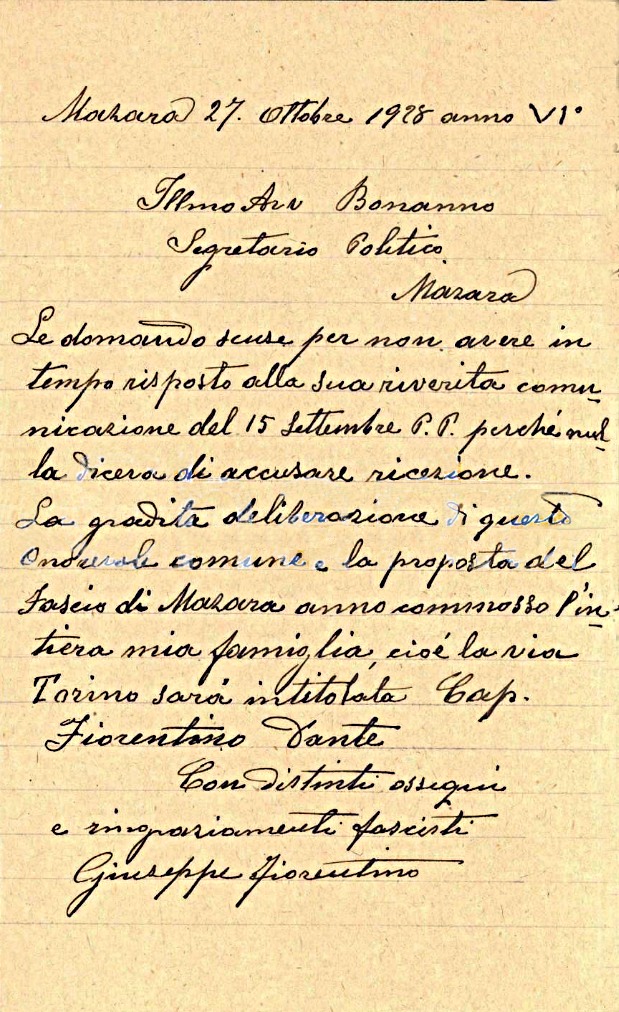 Mazara 27. Ottobre 1928 anno VI°
Illmo Avv Bonanno
Segretario Politico
Mazara
Le domando scuse per non avere in
tempo risposto alla sua riverita comu
nicazione del 15 Settembre P.P. perché nul
la diceva di accusare ricezione.
La gradita deliberazione di questo
Onorevole comune e la proposta del
Fascio di Mazara anno commosso l'in
tiera mia famiglia, cioé la via
Torino sará intitolata Cap.
Fiorentino Dante
Con distinti ossequi
e ringraziamenti fascisti
Giuseppe Fiorentino